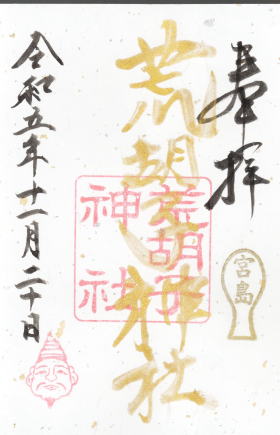 奉拝
荒胡子神社
荒胡子
神社
宮島
令和五年十一月二十日